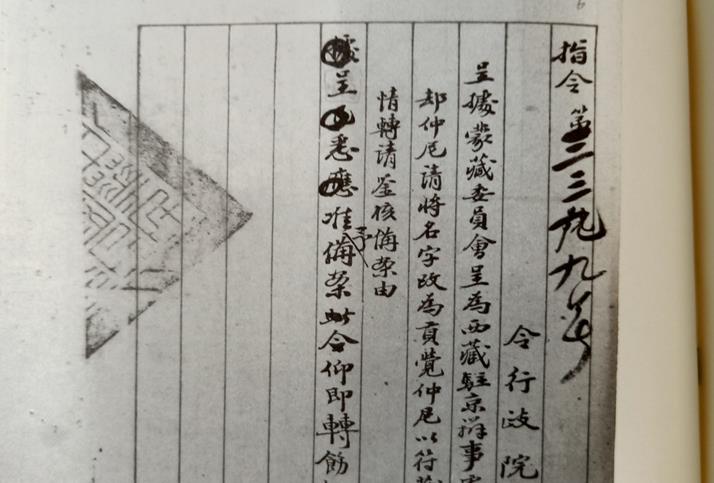 指令 第二三九九號
令行政院
呈據蒙藏委員會呈為西藏駐京辦事
却仲尼請將名字改為貢覺仲尼以符
情轉請鉴核備案由
據呈已悉應准予備案此令仰即轉飭